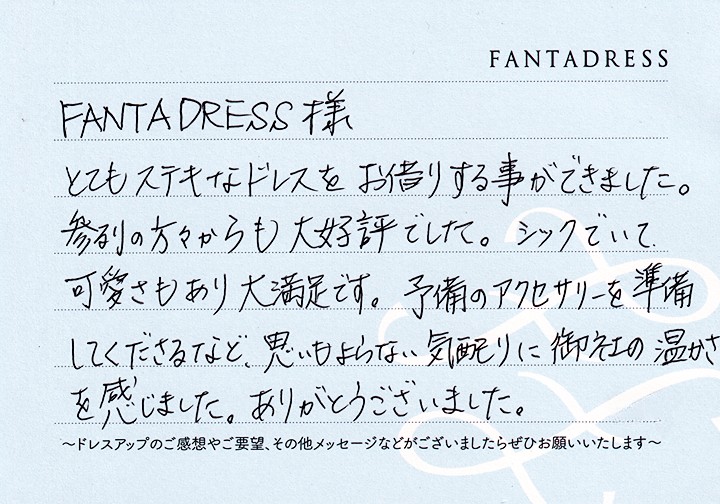 FANTADRESS
FANTADRESS 様
とてもステキなドレスを お借りする事ができました。
参列の方々からも 大好評でした。シックでいて
可愛さもあり大満足です。予備のアクセサリーを準備
してくださるなど、思いもよらない気配りに御社の温かさ
を感じました。ありがとうございました。
〜ドレスアップのご感想やご要望、その他メッセージなどがございましたらぜひお願いいたします〜